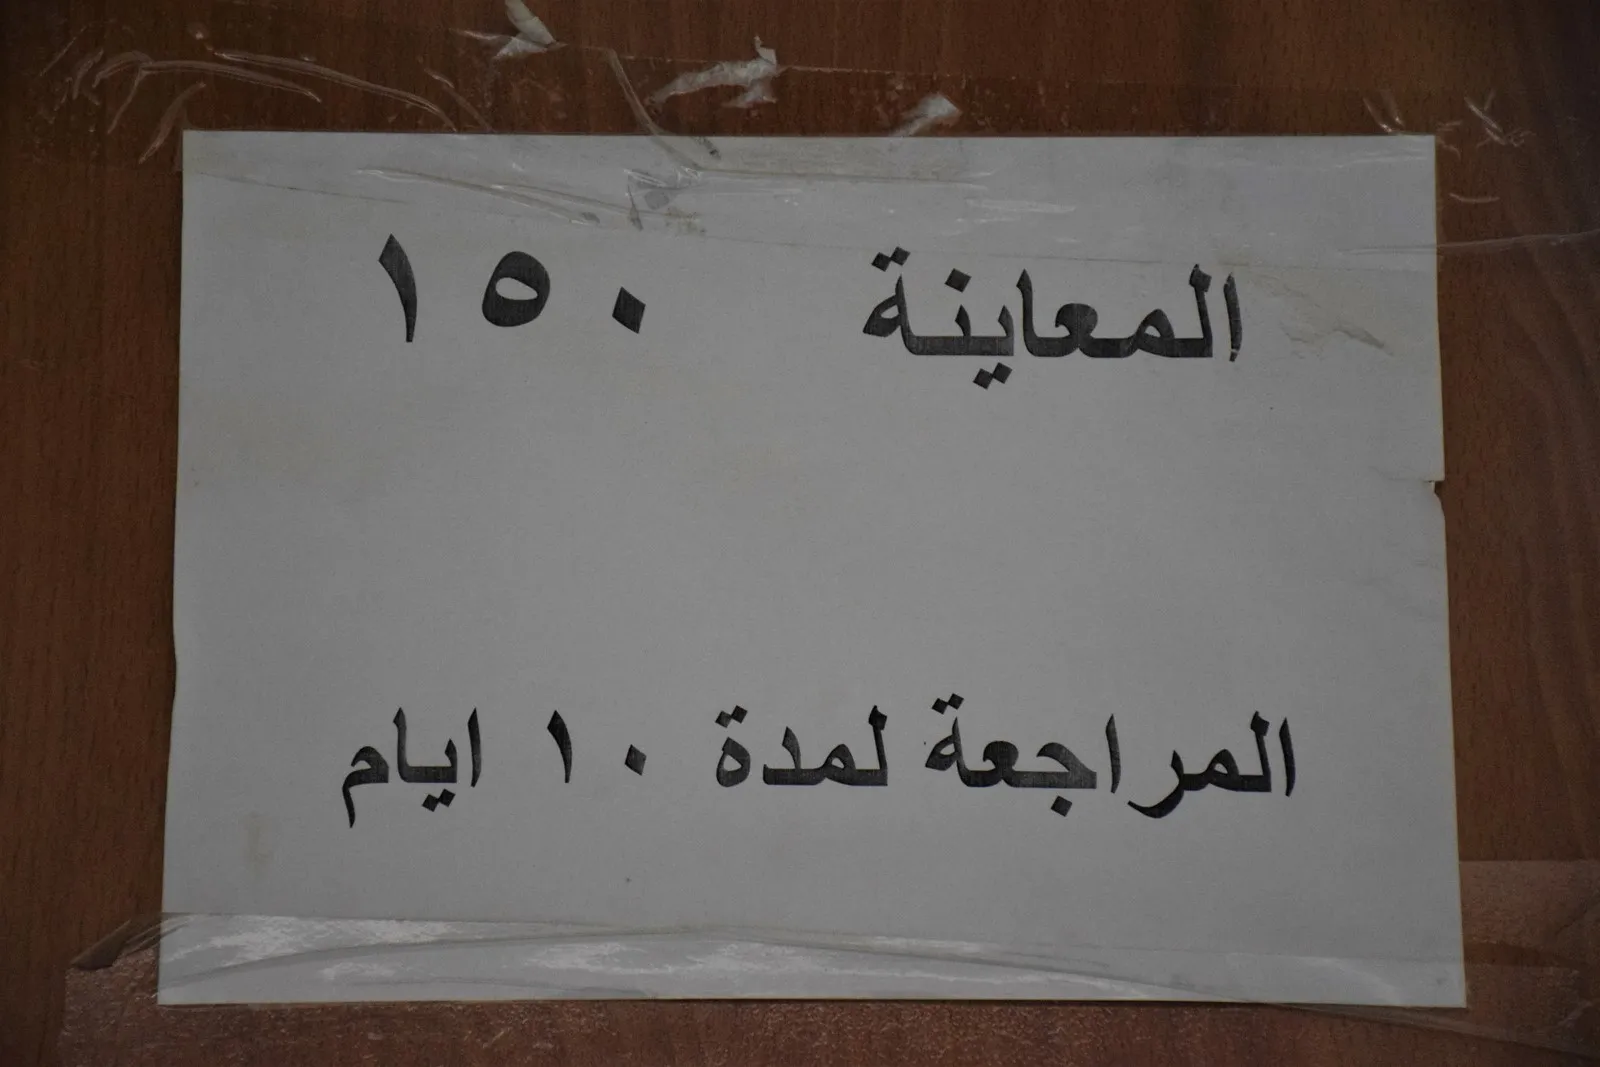 المعاينة ١٥٠
المراجعة لمدة ١٠ ايام